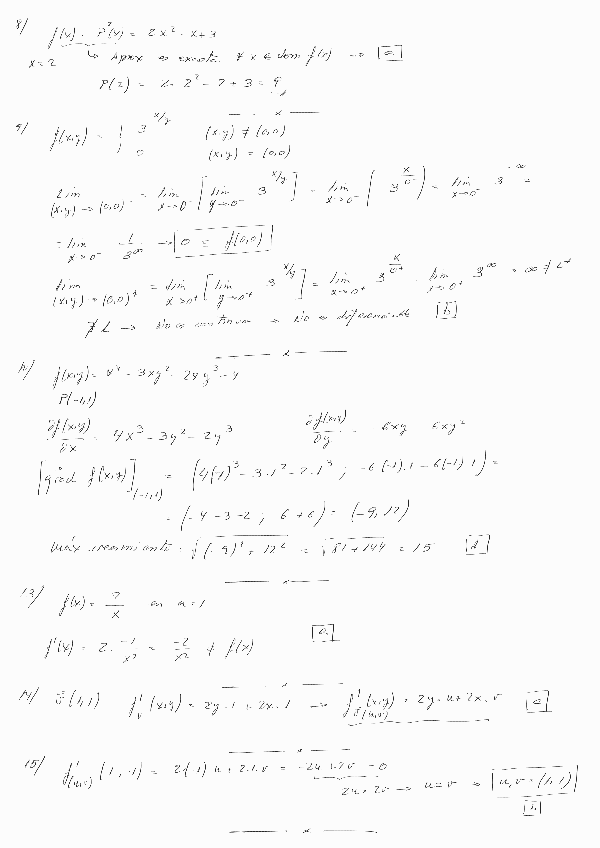 8/ f(x) = P²(x) = 2x² - x + 3
x=2 ↳ Aprox es exacta ∀ x ∈ dom f(x) → [a]
P(2) = 2·2² - 2 + 3 = 9
9/ f(x,y) = { 3^{x/y} (x,y) ≠ (0,0)
0 (x,y) = (0,0)
lim (x,y)→(0,0)⁻ = lim x→0⁻ [lim y→0⁻ 3^{x/y}] = lim x→0⁻ ( 3^{x/0⁻} ) = lim x→0⁻ 3^{-∞} =
= lim x→0⁻ 1/3^∞ → 0 = f(0,0)
lim (x,y)→(0,0)⁺ = lim x→0⁺ [lim y→0⁺ 3^{x/y}] = lim x→0⁺ 3^{x/0⁺} = lim x→0⁺ 3^∞ = ∞ ≠ L⁺
∄ L → no es continua → no es diferenciable [b]
f(x,y) = x⁴ - 3xy² - 2xy³ - 4
P(-1,1)
∂f(x,y)/∂x = 4x³ - 3y² - 2y³ ∂f(x,y)/∂y = 6xy 6xy²
[grad f(x,y)](-1,1) = (4(1)³ - 3·1² - 2·1³ ; -6(-1)·1 - 6(-1)·1) =
= (-4-3-2 ; 6+6) = (-9,12)
máx crecimiento = √(-9)² + 12² = √81+144 = 15 [d]
13/ f(x) = 2/x en a=1
f'(x) = 2·-1/x² = -2/x² ≠ f(x) [a]
14/ v̄(1,1) f'v(x,y) = 2y·1 + 2x·1 → f'v̄(u,v)(x,y) = 2y·u + 2x·v [c]
15/ f'(u,v)(1,-1) = 2(-1)u + 2·1·v = -2u + 2v = 0
2u = 2v → u=v → u,v = (1,1)
[b]